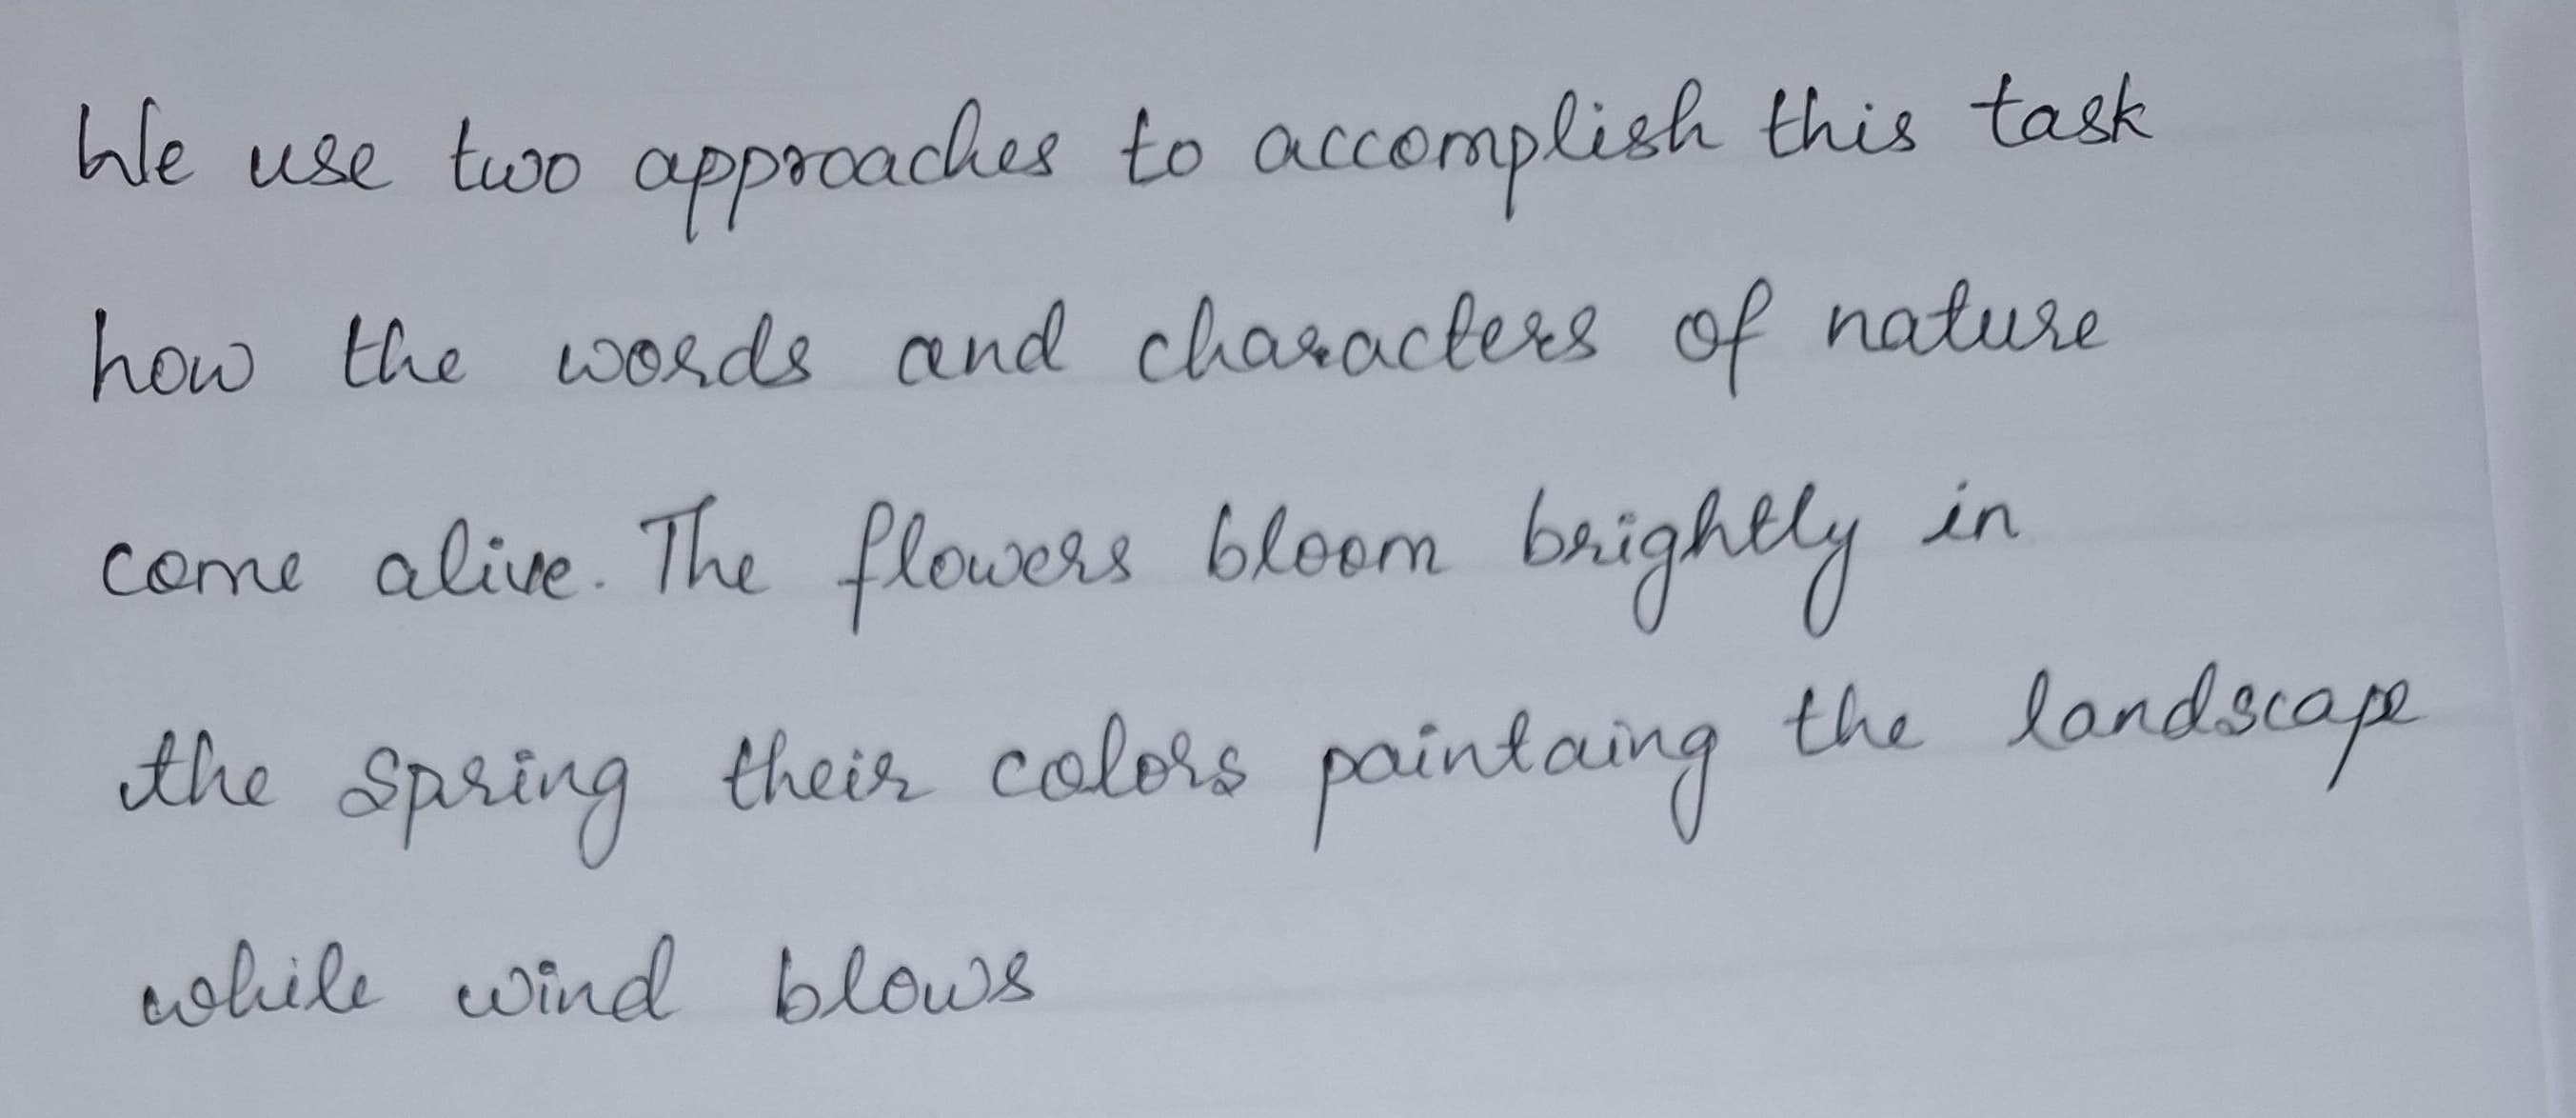 We use two approaches to accomplish this task
how the words and characters of nature
come alive. The flowers bloom brightly in
the spring their colors paintaing the landscape
while wind blows